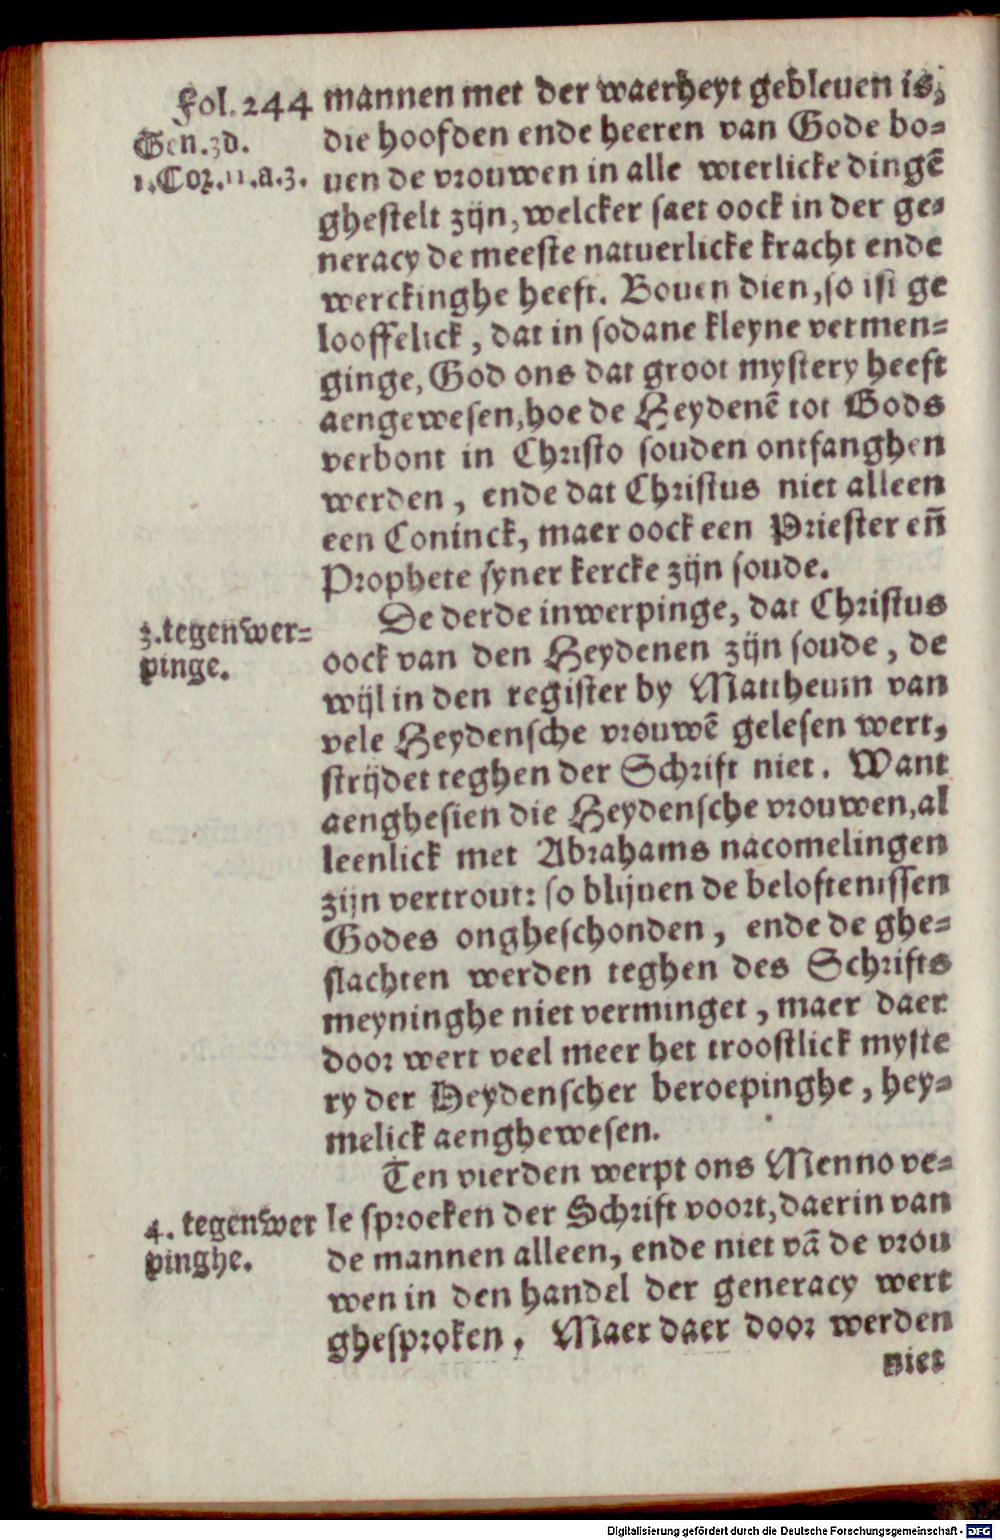 Fol. 244
Gen. 3d.
1. Cor. 11. a. 3.
mannen met der waerheyt gebleuen is,
die hoofden ende heeren van Gode bo=
uen de vrouwen in alle wterlicke dingē
ghestelt zijn, welcker saet oock in der ge=
neracy de meeste natuerlicke kracht ende
werckinghe heeft. Bouen dien, so ist ge
looffelick, dat in sodane kleyne vermen=
ginge, God ons dat groot mystery heeft
aengewesen, hoe de Heydenē tot Gods
verbont in Christo souden ontfanghen
werden, ende dat Christus niet alleen
een Coninck, maer oock een Priester eñ
Prophete syner kercke zijn soude.
3. tegenwer=
pinge.
De derde inwerpinge, dat Christus
oock van den Heydenen zijn soude, de
wijl in den register by Mattheum van
vele Heydensche vrouwē gelesen wert,
strijdet teghen der Schrift niet. Want
aenghesien die Heydensche vrouwen, al
leenlick met Abrahams nacomelingen
zijn vertrout: so blijuen de beloftenissen
Godes ongheschonden, ende de ghe=
slachten werden teghen des Schrifts
meyninghe niet verminget, maer daer
door wert veel meer het troostlick myste
ry der Heydenscher beroepinghe, hey=
melick aenghewesen.
4. tegenwer
pinghe.
Ten vierden werpt ons Menno ve=
le sproeken der Schrift voort, daerin van
de mannen alleen, ende niet vā de vrou
wen in den handel der generacy wert
ghesproken. Maer daer door werden
niet
Digitalisierung gefördert durch die Deutsche Forschungsgemeinschaft - DFG